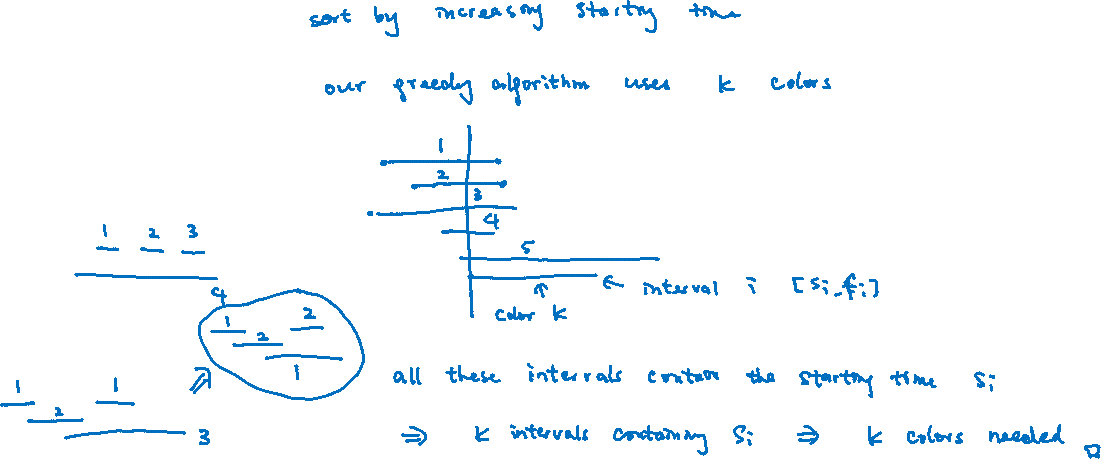 sort by increasing starting time
our greedy algorithm uses k colors
1
2
3
4
5
1 2 3
4
← interval i [si, fi]
↑
color k
1 2
2
1
1 1
2
3
⇒
all these intervals contain the starting time si
⇒ k intervals containing si ⇒ k colors needed □